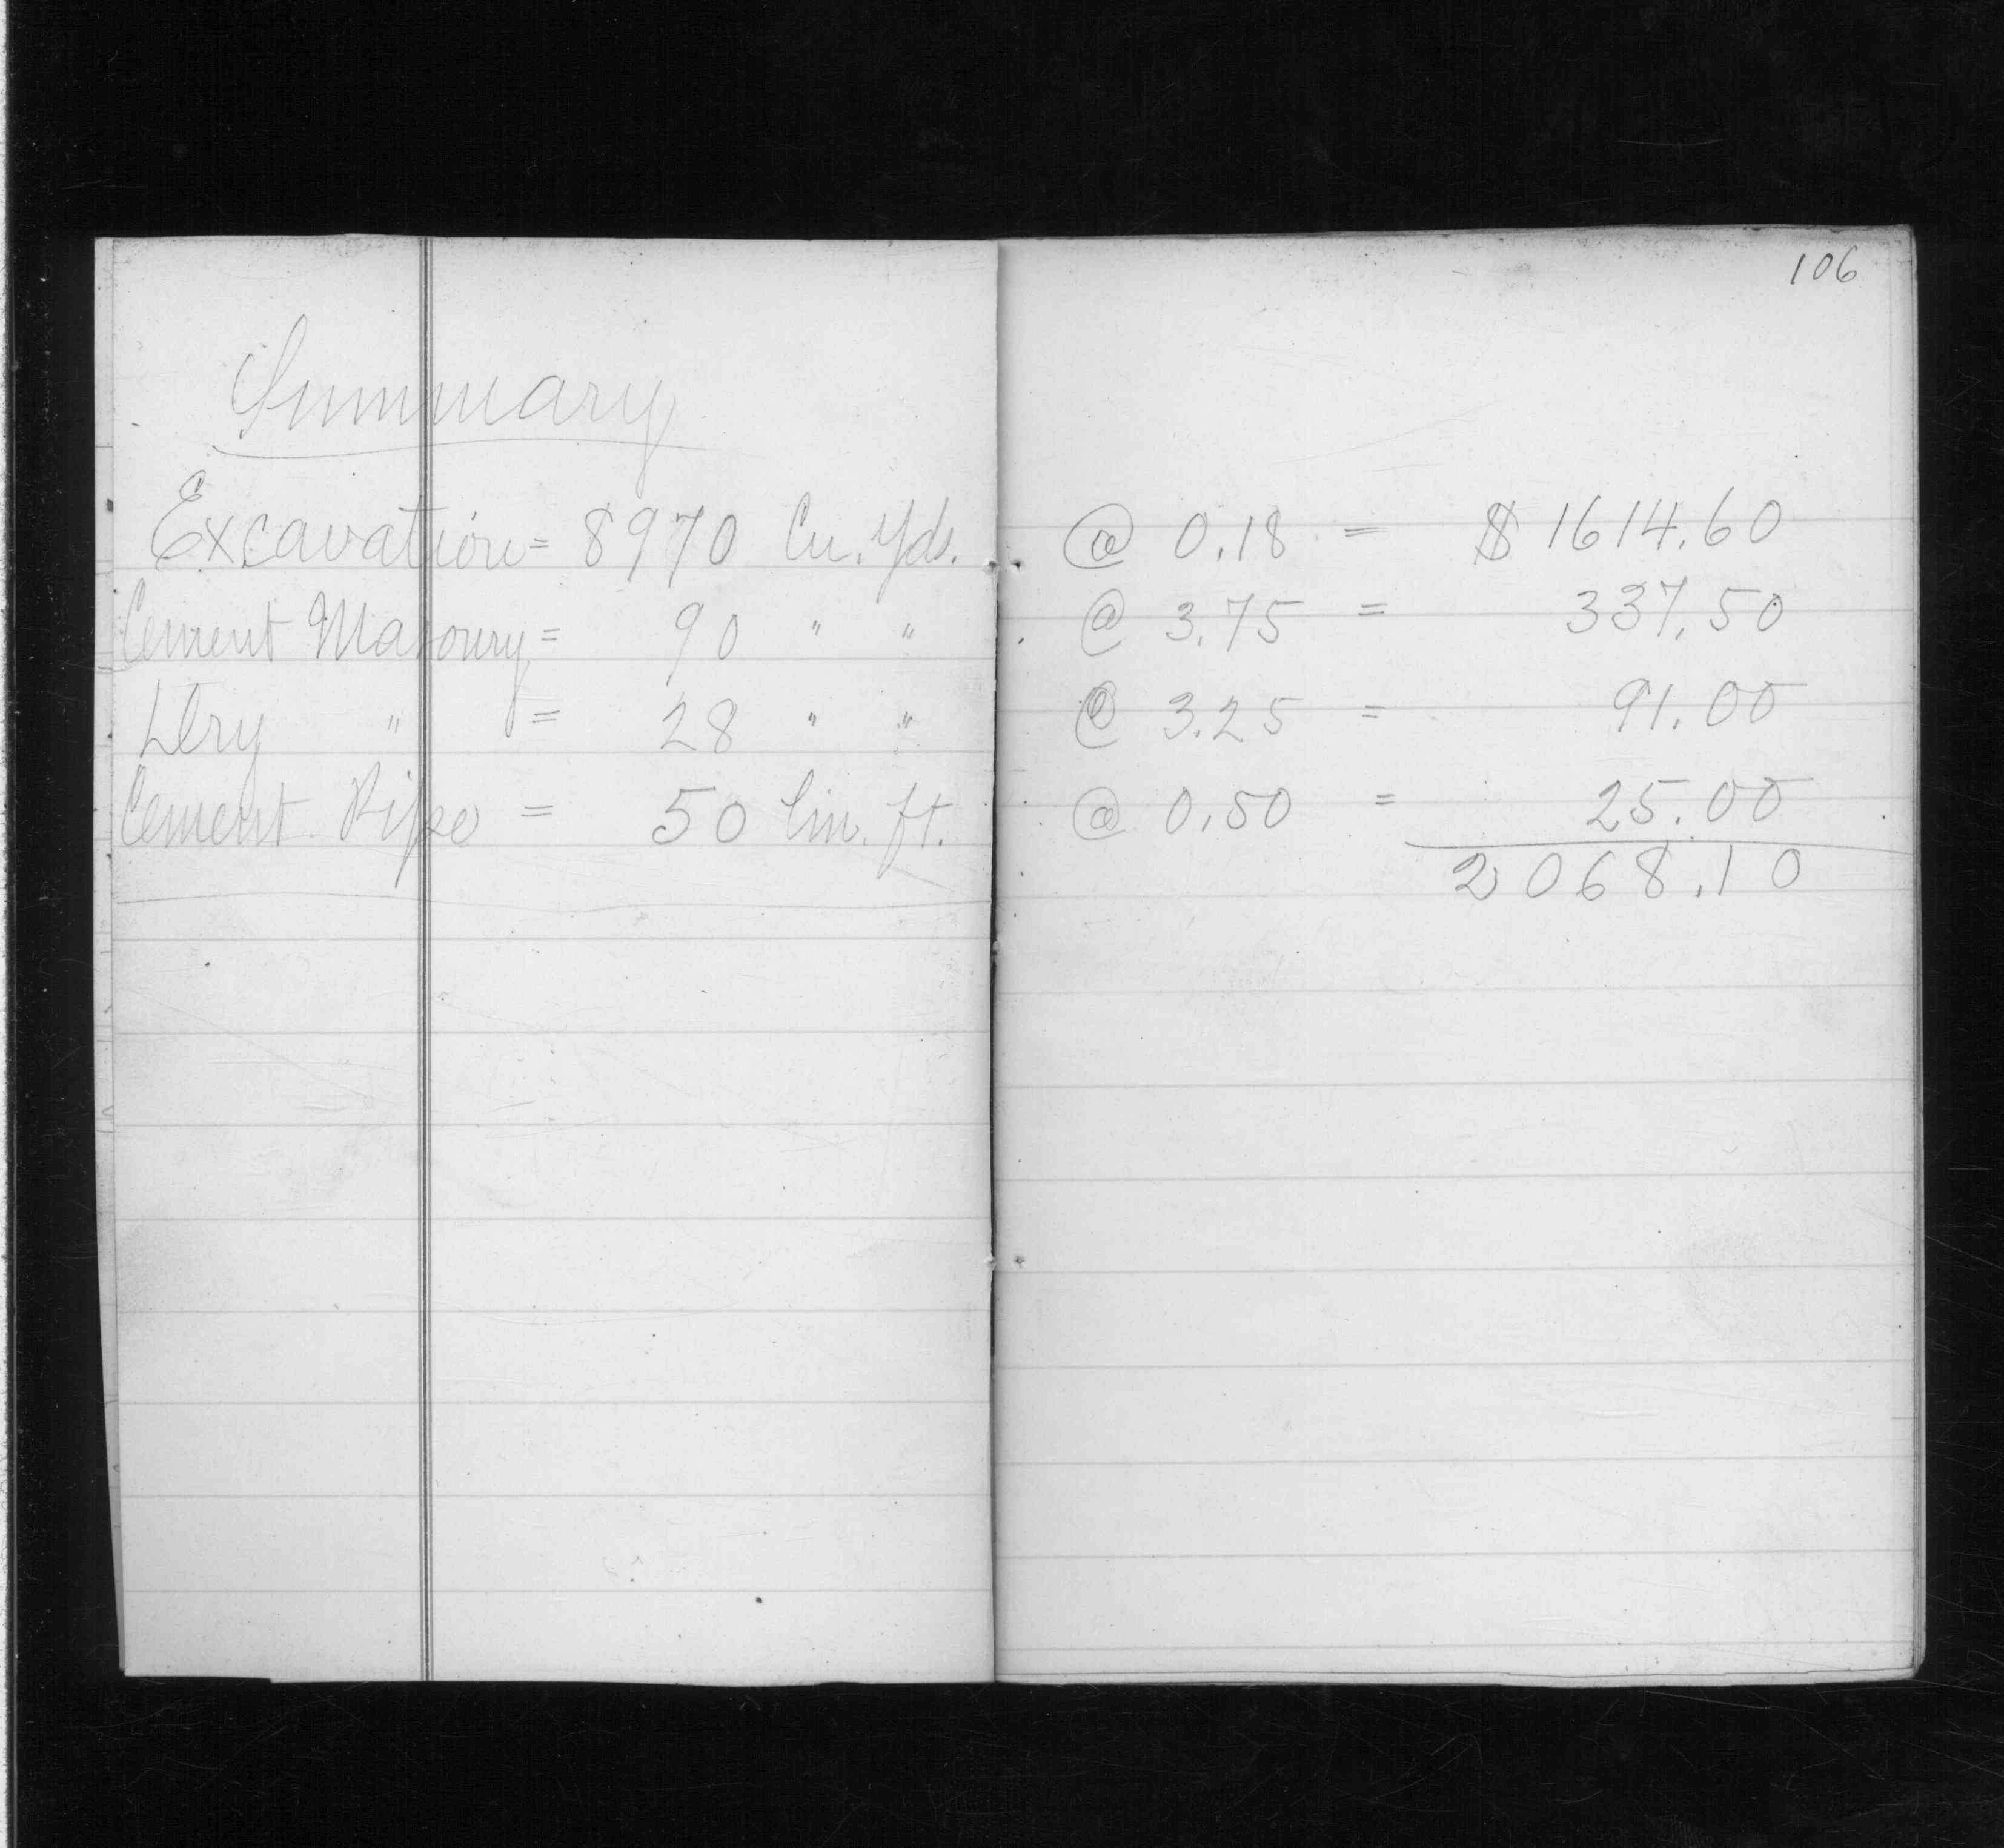 106
Summary
Excavation = 8970 Cu. Yds. @ 0.18 = $ 1614.60
Cement Masonry = 90 " " @ 3.75 = 337.50
Dry " = 28 " " @ 3.25 = 91.00
Cement Pipe = 50 lin. ft. @ 0.50 = 25.00
2068.10